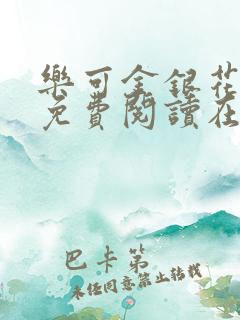 樂可金銀花
免費閱讀在
巴卡第
未经同意禁止转载